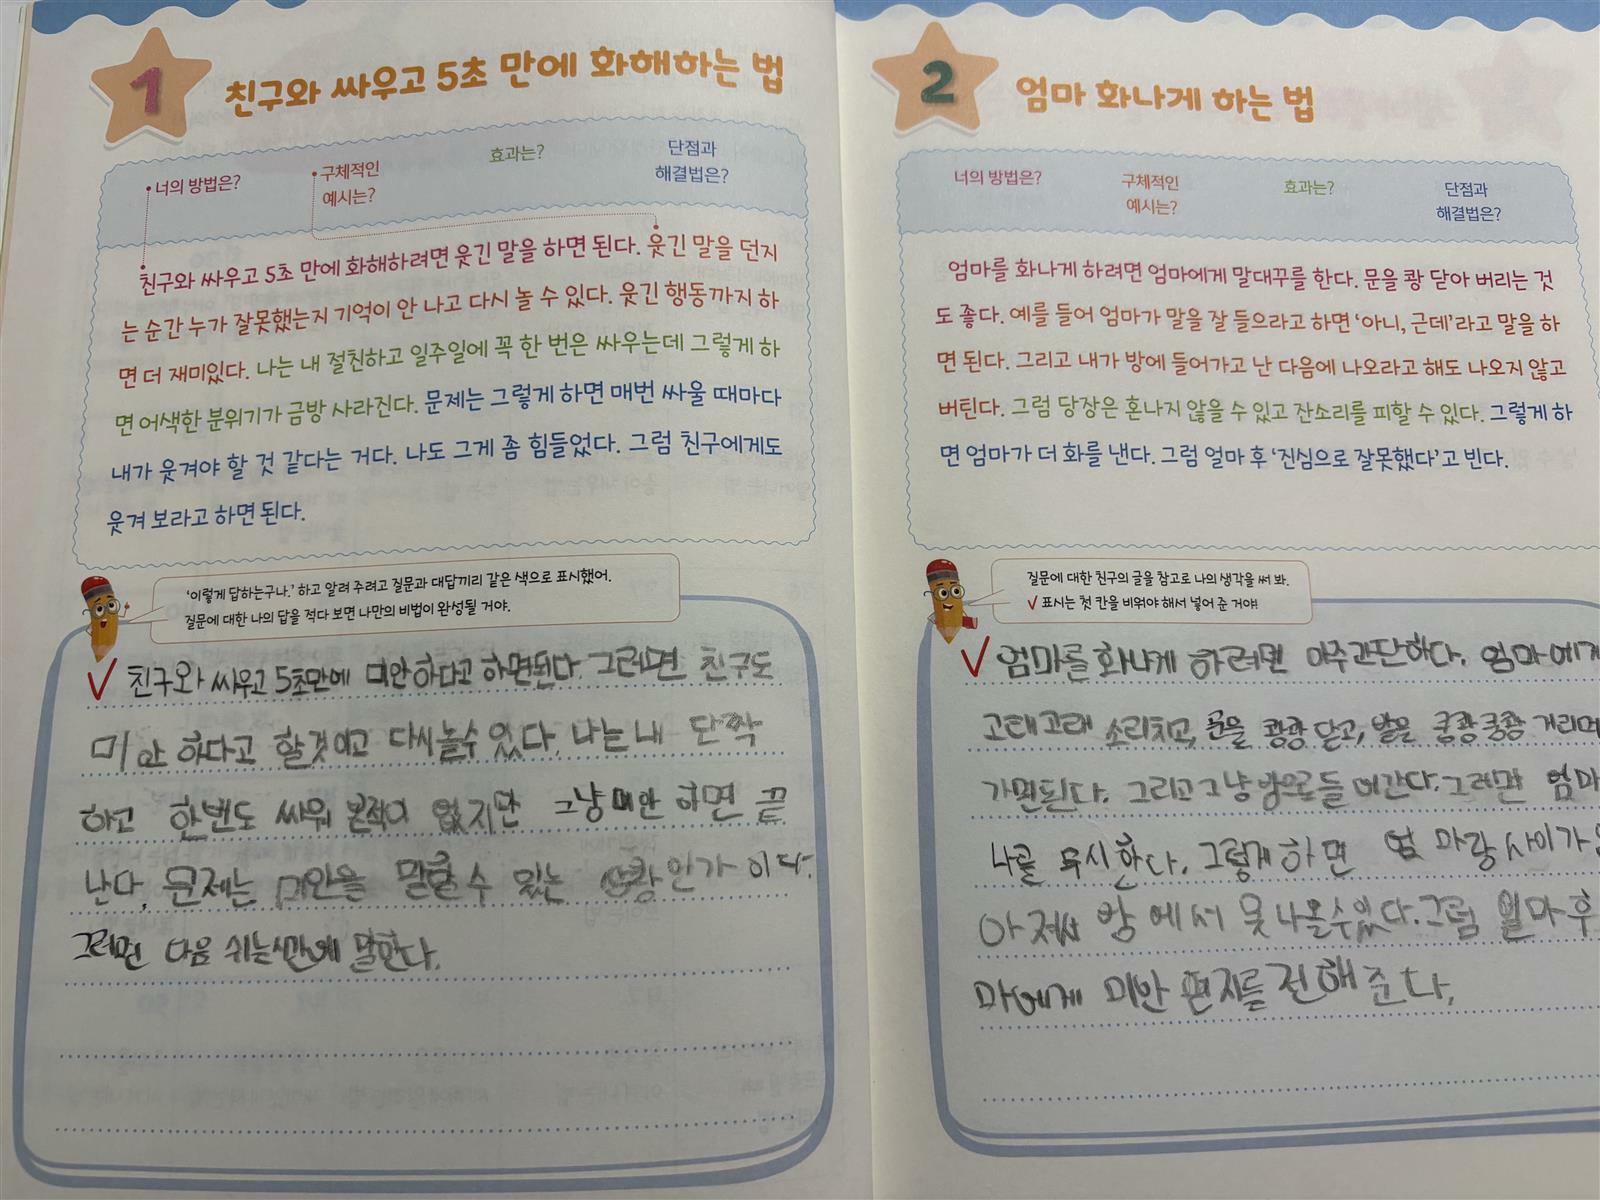 1
친구와 싸우고 5초 만에 화해하는 법
너의 방법은?
구체적인
예시는?
효과는?
단점과
해결법은?
친구와 싸우고 5초 만에 화해하려면 웃긴 말을 하면 된다. 웃긴 말을 던지
는 순간 누가 잘못했는지 기억이 안 나고 다시 놀 수 있다. 웃긴 행동까지 하
면 더 재미있다. 나는 내 절친하고 일주일에 꼭 한 번은 싸우는데 그렇게 하
면 어색한 분위기가 금방 사라진다. 문제는 그렇게 하면 매번 싸울 때마다
내가 웃겨야 할 것 같다는 거다. 나도 그게 좀 힘들었다. 그럼 친구에게도
웃겨 보라고 하면 된다.
'이렇게 답하는구나.' 하고 알려 주려고 질문과 대답끼리 같은 색으로 표시했어.
질문에 대한 나의 답을 적다 보면 나만의 비법이 완성될 거야.
친구와 싸우고 5초만에 미안하다고 하면된다. 그러면 친구도
미안 하다고 할것이고 다시놀수있다. 나는 내 단짝
하고 한번도 싸워 본적이 없지만 그냥 미안 하면 끝
난다. 문제는 미안을 말할수 있는 상황인가 이다.
그러면 다음 쉬는시간에 말한다.
2
엄마 화나게 하는 법
너의 방법은?
구체적인
예시는?
효과는?
단점과
해결법은?
엄마를 화나게 하려면 엄마에게 말대꾸를 한다. 문을 쾅 닫아 버리는 것
도 좋다. 예를 들어 엄마가 말을 잘 들으라고 하면 '아니, 근데'라고 말을 하
면 된다. 그리고 내가 방에 들어가고 난 다음에 나오라고 해도 나오지 않고
버틴다. 그럼 당장은 혼나지 않을 수 있고 잔소리를 피할 수 있다. 그렇게 하
면 엄마가 더 화를 낸다. 그럼 얼마 후 '진심으로 잘못했다'고 빈다.
질문에 대한 친구의 글을 참고로 나의 생각을 써 봐.
✓ 표시는 첫 칸을 비워야 해서 넣어 준 거야!
엄마를 화나게 하려면 아주간단하다. 엄마에게
고래고래 소리치고, 문을 쾅쾅 닫고, 발을 쿵쾅쿵쾅 거리며
가면된다. 그리고 그냥 방으로 들어간다. 그러면 엄마
나를 무시한다. 그렇게하면 엄마랑 사이가
방에서 못나올수있다. 그럼 얼마후
마에게 미안 편지를 전해준다.